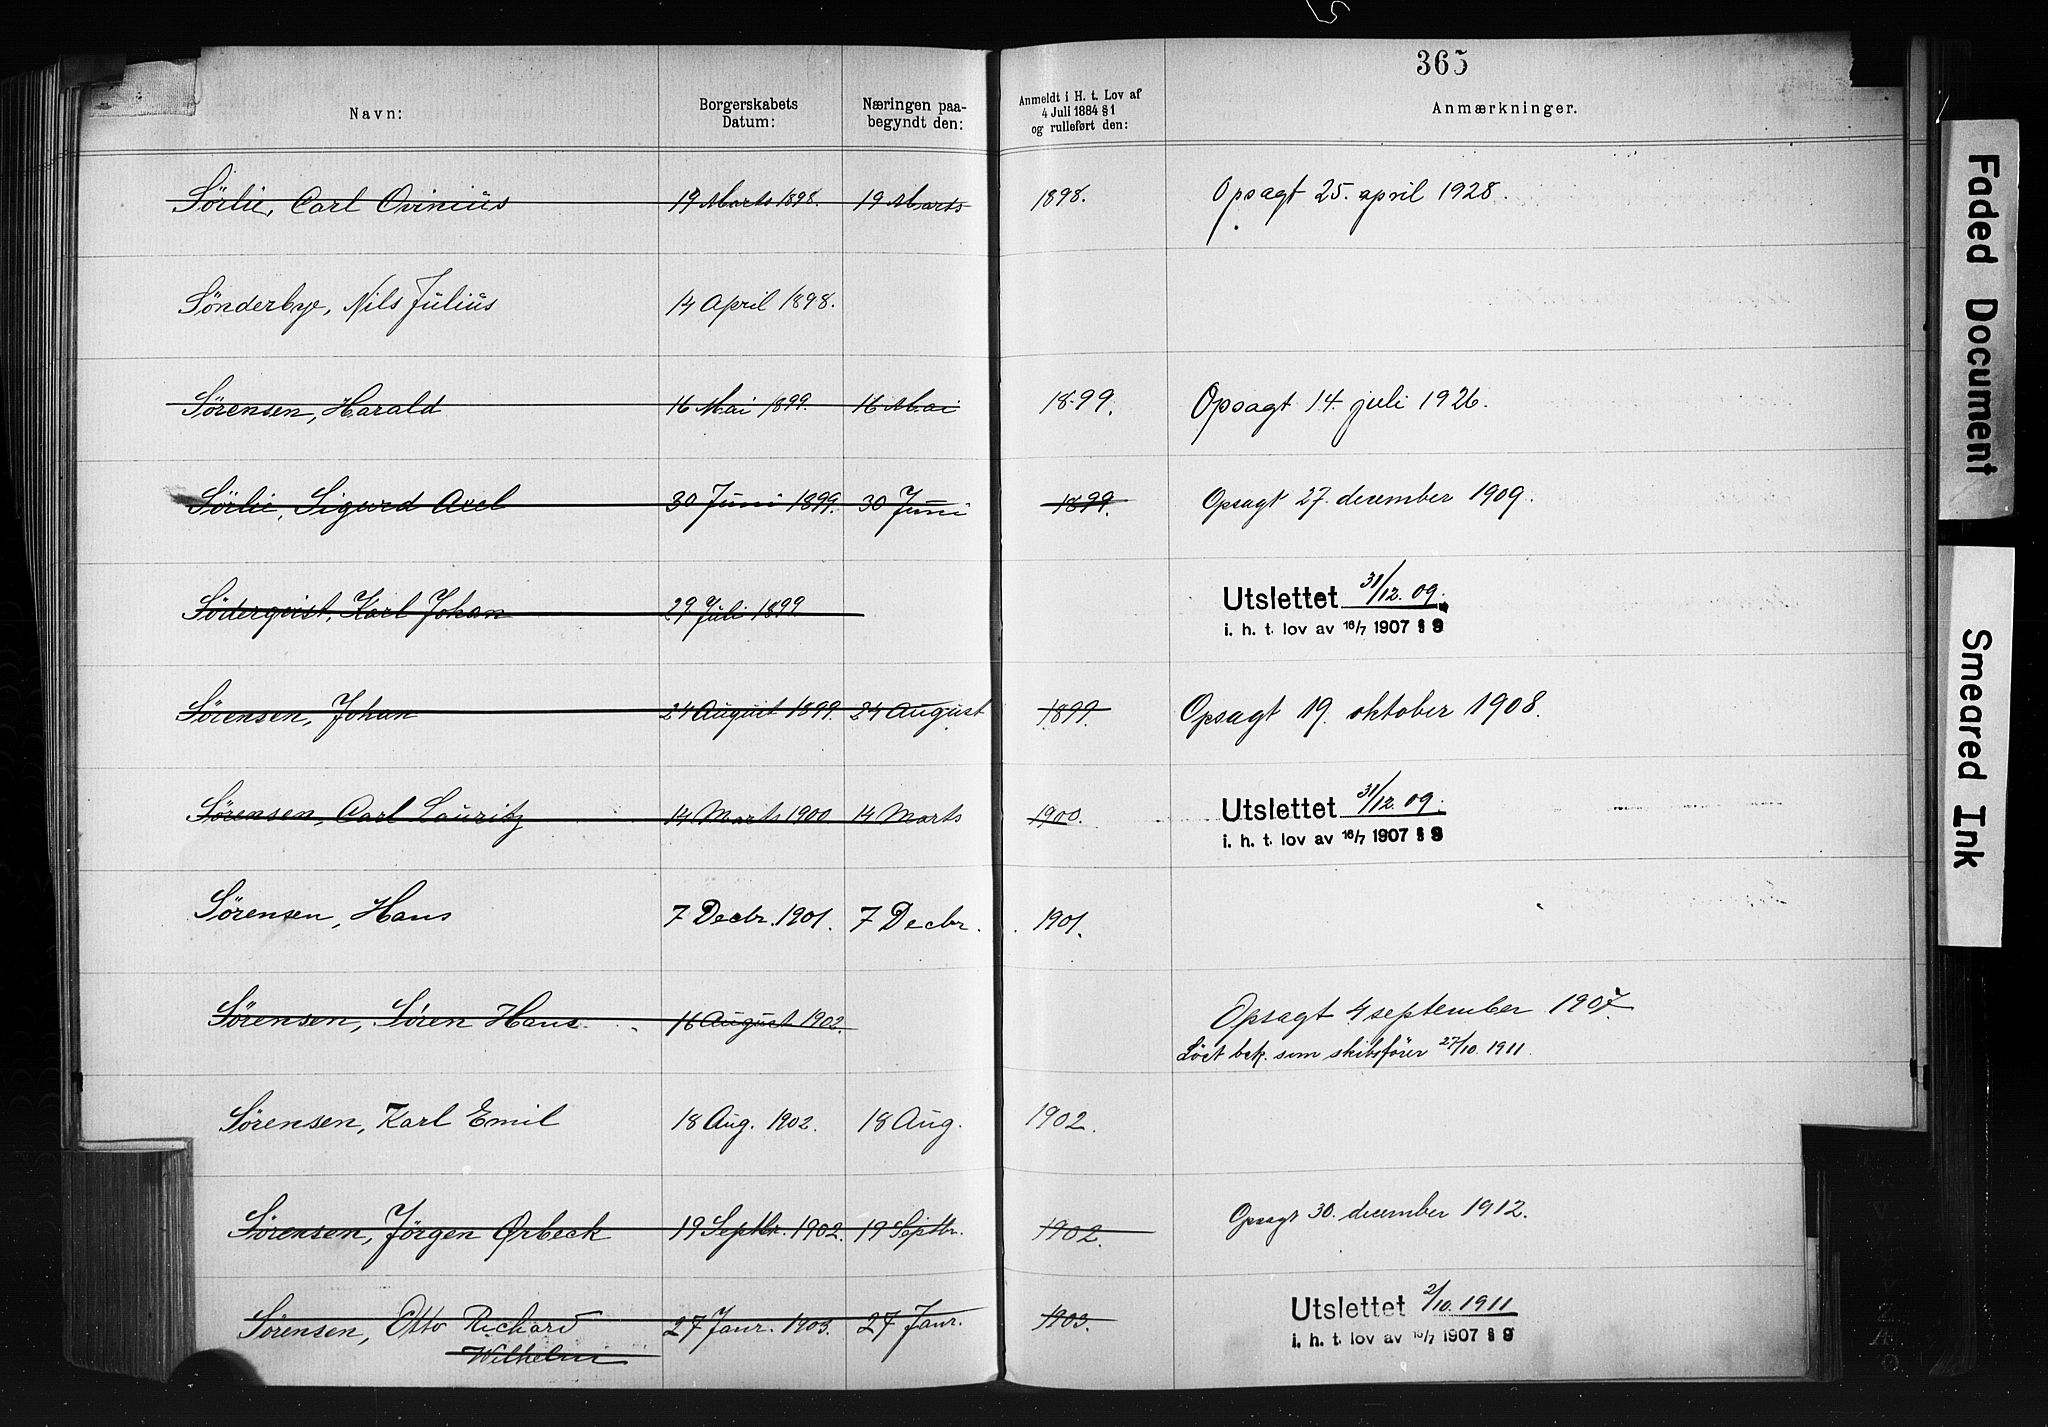 365
Navn: Borgerskabets Datum: Næringen paa- begyndt den: Anmeldt i H. t. Lov af 4 Juli 1884 § 1 og rulleført den: Anmærkninger.
Sörlie, Carl Ovinius 19 Marts 1898. 19 Marts 1898. Opsagt 25. april 1928.
Sönderbye, Nils Julius 14 April 1898.
Sørensen, Harald 16 Mai 1899. 16 Mai 1899. Opsagt 14. juli 1926.
Sörlie, Sigurd Axel 30 Juni 1899. 30 Juni 1899. Opsagt 27. december 1909.
Söderqvist, Karl Johan 29 Juli 1899 Utslettet 31/12. 09.
i. h. t. lov av 16/7 1907 § 9
Sørensen, Johan 24 August 1899. 24 August 1899. Opsagt 19. oktober 1908.
Sørensen, Carl Lauritz 14 Marts 1900 14 Marts 1900. Utslettet 31/12. 09.
i. h. t. lov av 16/7 1907 § 9
Sørensen, Hans 7 Decbr. 1901. 7 Decbr. 1901.
Sørensen, Sören Hans 16 August 1902. Opsagt 4 september 1907.
Löst bek. som skibsfører 27/10. 1911.
Sørensen, Karl Emil 18 Aug. 1902. 18 Aug. 1902.
Sørensen, Jörgen Ørbeck 19 Septbr. 1902. 19 Septbr. 1902. Opsagt 30. december 1912.
Sørensen, Otto Richard 27 Janr. 1903. 27 Janr. 1903. Utslettet 2/10. 1911
Wilhelm i. h. t. lov av 16/7 1907 § 9
Faded Document
Smeared Ink